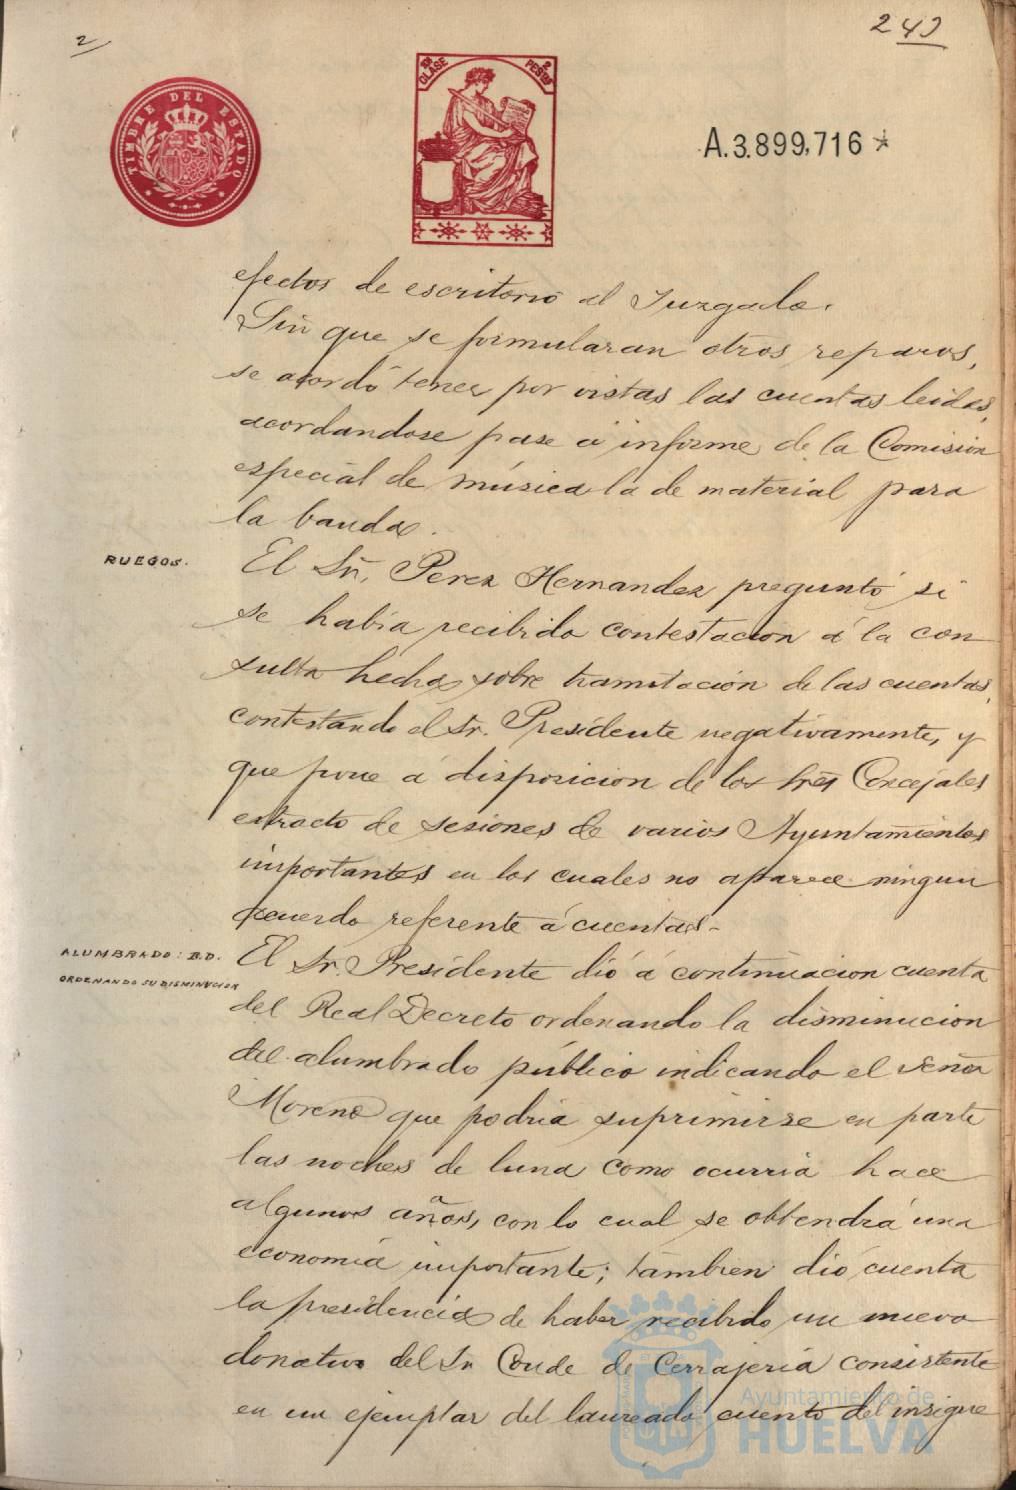 2
242
TIMBRE DEL ESTADO
CLASE
2 PESTAS
A.3.899,716 *
efectos de escritorio al Juzgado.
Sin que se formularan otros reparos,
se acordó tener por vistas las cuentas leidas,
acordandose pase á informe de la Comision
especial de música la de material para
la banda.
RUEGOS.
El Sr. Perez Hernandez preguntó si
se habia recibido contestacion á la con
sulta hecha sobre tramitación de las cuentas,
contestando el Sr. Presidente negativamente, y
que pone á disposicion de los tres Concejales
extracto de sesiones de varios Ayuntamientos
importantes en los cuales no aparece ningun
acuerdo referente á cuentas.-
ALUMBRADO: R.D.
ORDENANDO SU DISMINUCION
El Sr. Presidente dió á continuacion cuenta
del Real Decreto ordenando la disminucion
del alumbrado público indicando el señor
Moreno que podria suprimirse en parte
las noches de luna como ocurria hace
algunos años, con lo cual se obtendrá una
economia importante; tambien dió cuenta
la presidencia de haber recibido un nuevo
donativo del Sr Conde de Cerrajeria consistente
en un ejemplar del laureado cuento del insigne
Ayuntamiento de
HUELVA